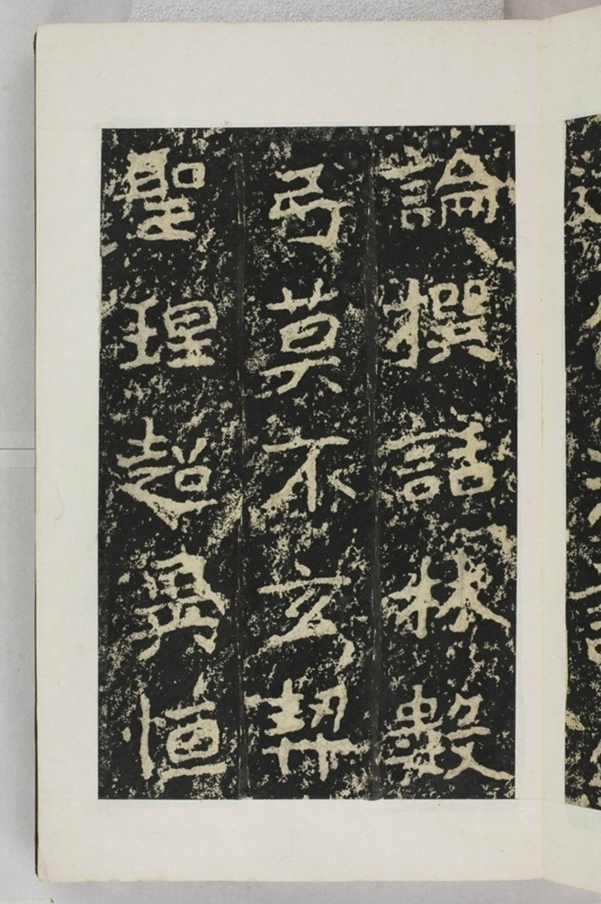 論撰話林數
弓莫不玄契
聖理超異恒